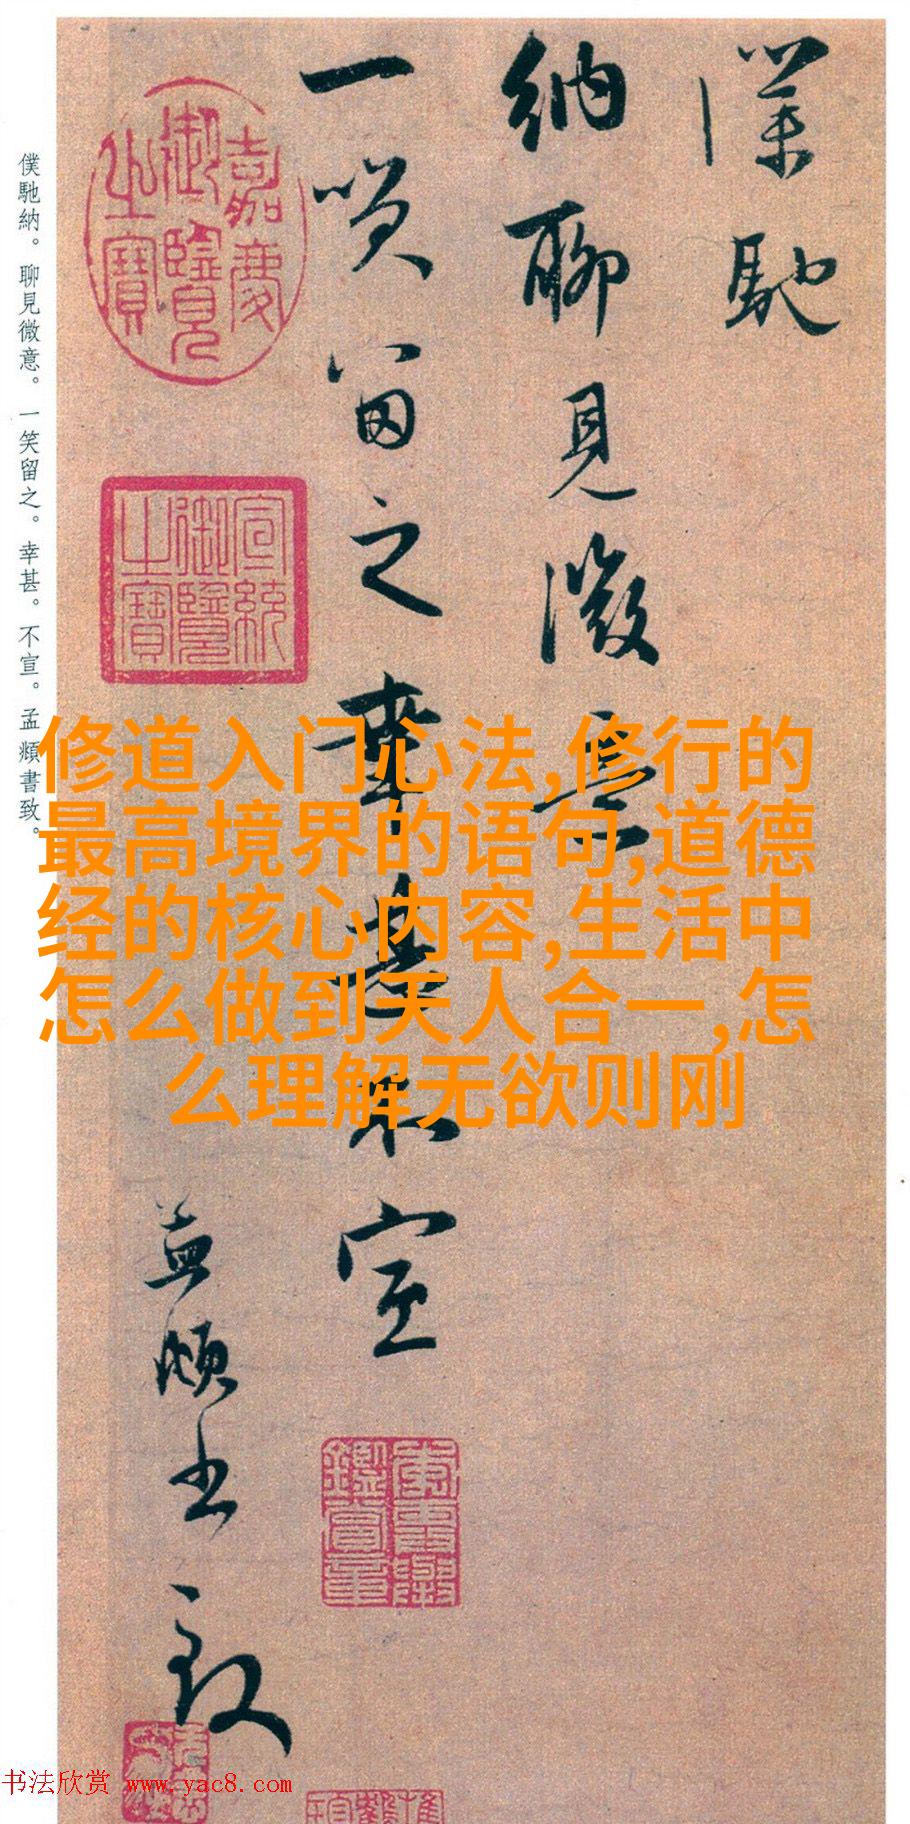 僕馳
納聊見微意
一笑留之幸甚不宣
孟頫書致
嘉慶御覽之寶
宣統御覽之寶
僕馳納。聊見微意。一笑留之。幸甚。不宣。孟頫書致。
修道入门心法,修行的
最高境界的语句,道德
经的核心内容,生活中
怎么做到天人合一,怎
么理解无欲则刚
书法欣赏 www.yac8.com